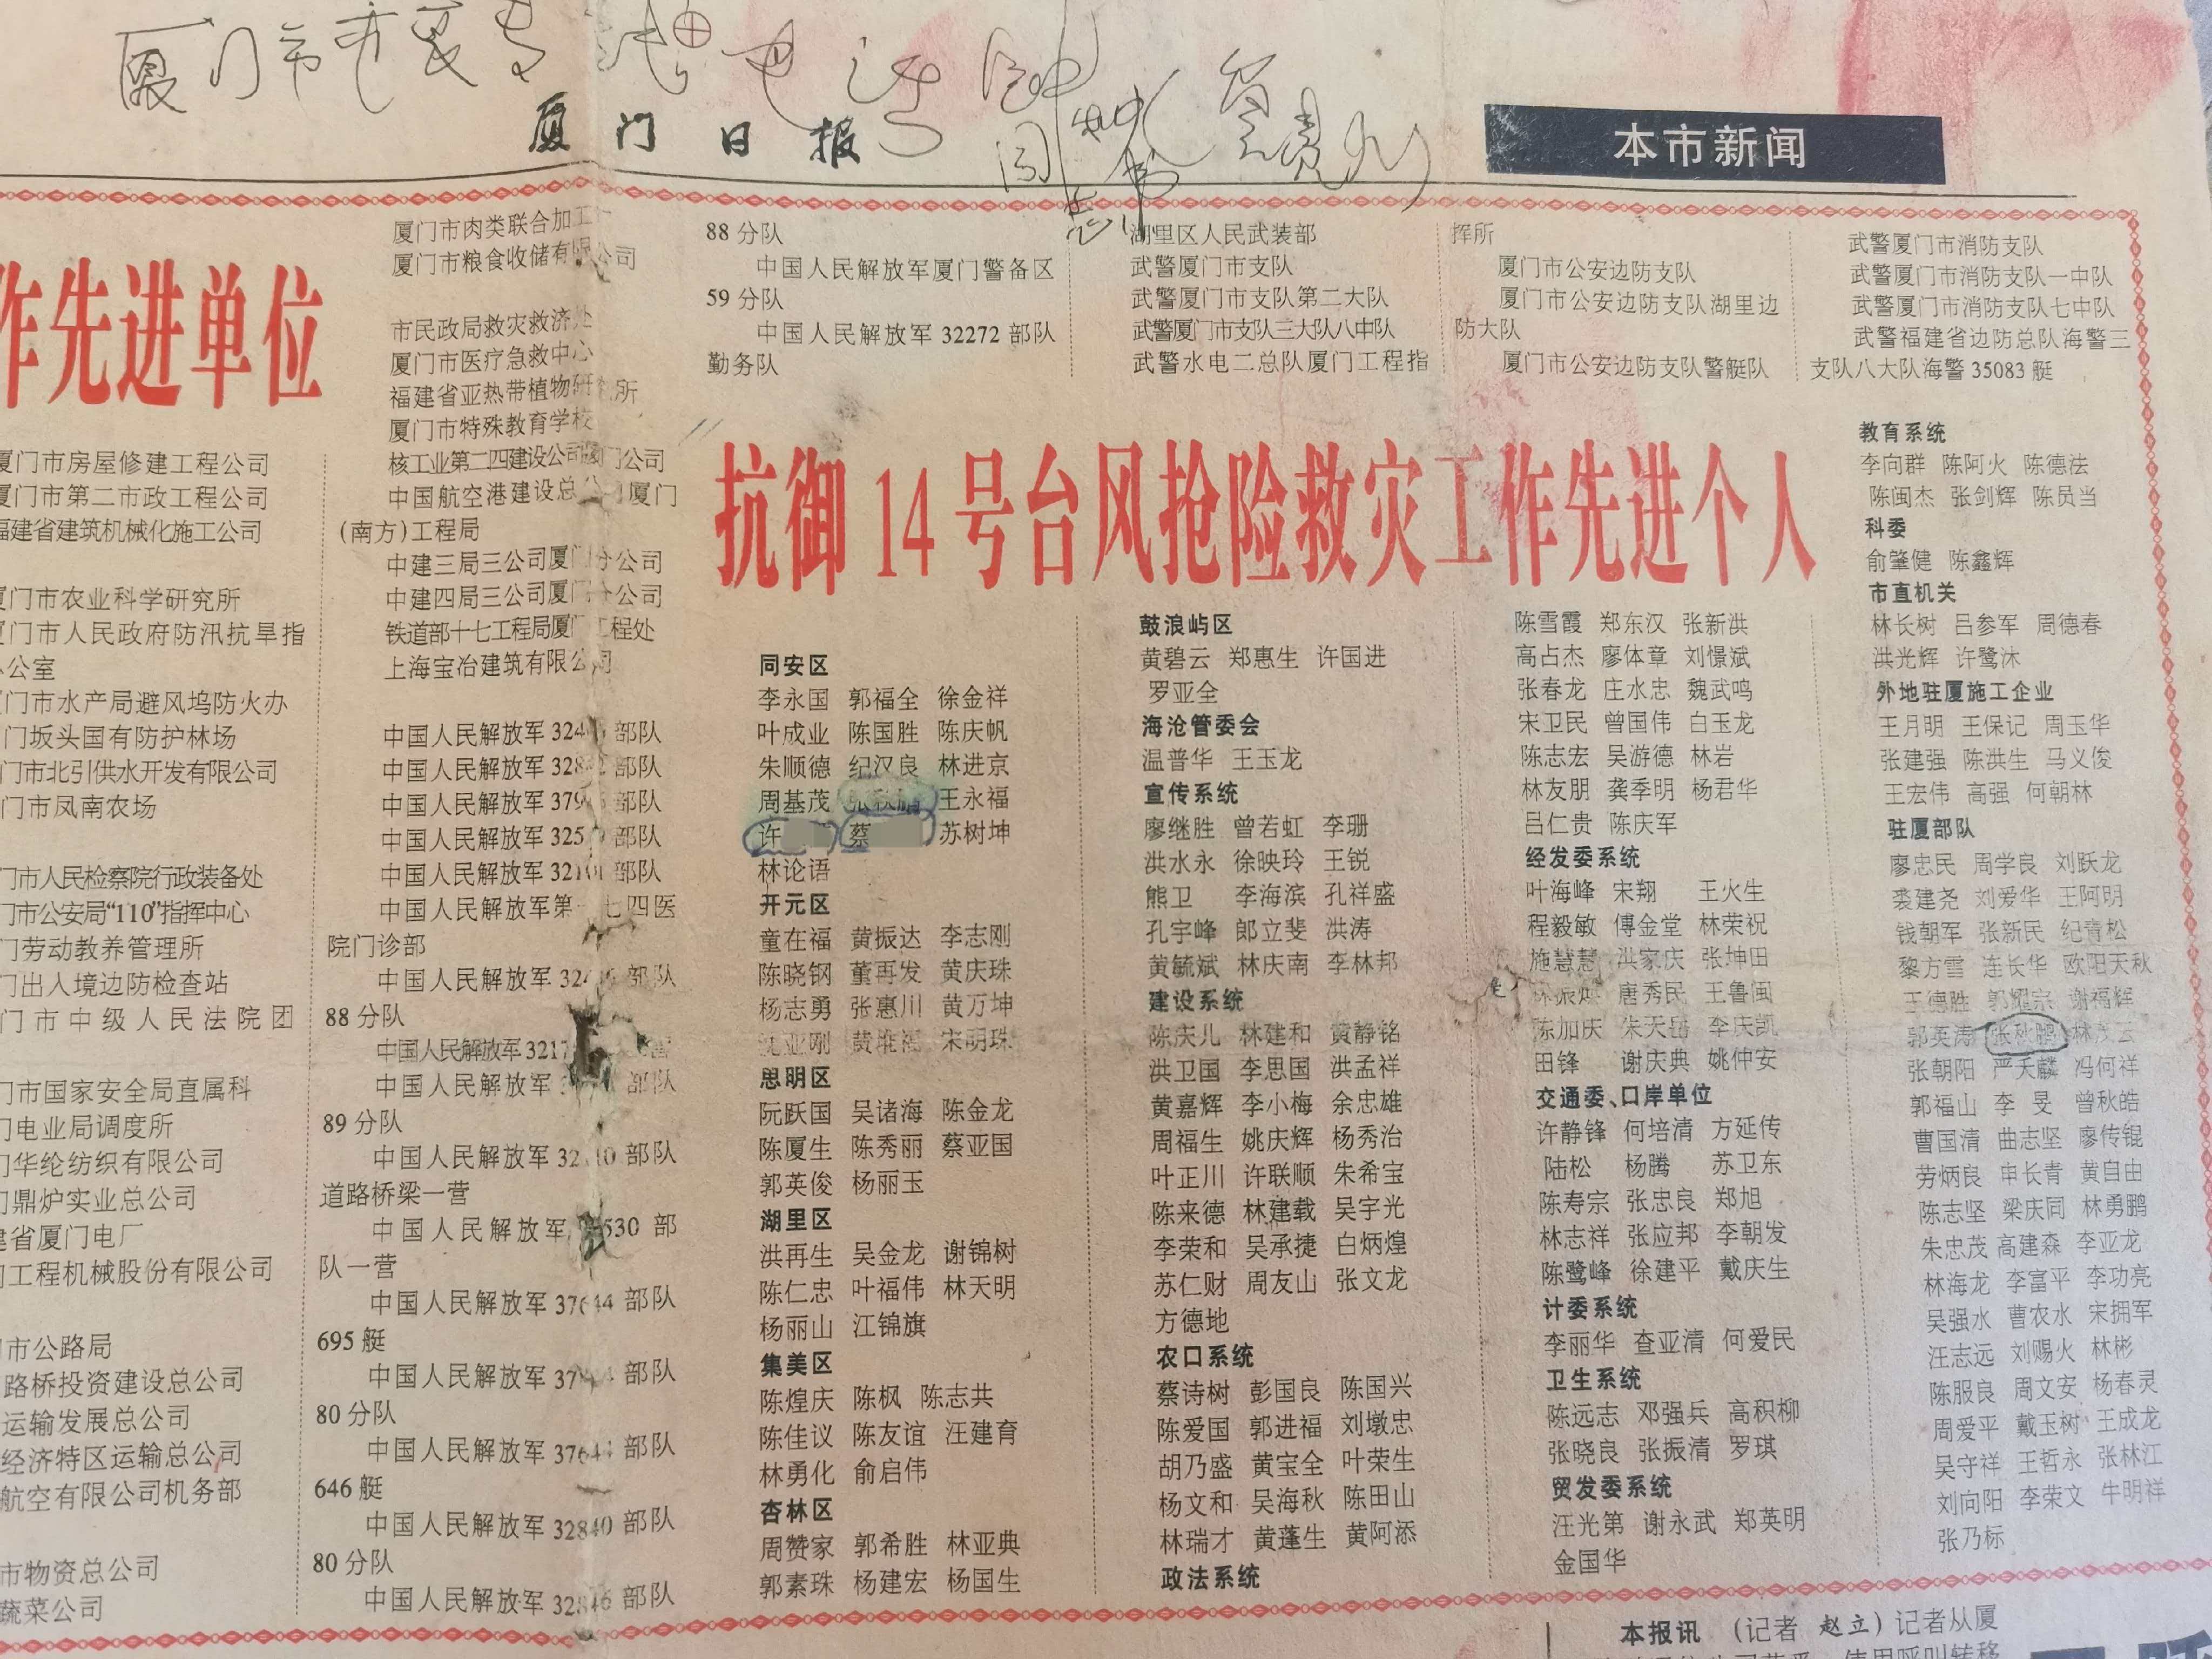 厦门日报
本市新闻
作先进单位
厦门市房屋修建工程公司
厦门市第二市政工程公司
福建省建筑机械化施工公司
厦门市农业科学研究所
厦门市人民政府防汛抗旱指
公室
门市水产局避风坞防火办
门坂头国有防护林场
门市北引供水开发有限公司
门市凤南农场
门市人民检察院行政装备处
门市公安局“110”指挥中心
门劳动教养管理所
门出入境边防检查站
门市中级人民法院团
门市国家安全局直属科
门电业局调度所
门华纶纺织有限公司
门鼎炉实业总公司
建省厦门电厂
门工程机械股份有限公司
市公路局
路桥投资建设总公司
运输发展总公司
经济特区运输总公司
航空有限公司机务部
市物资总公司
蔬菜公司
厦门市肉类联合加工
厦门市粮食收储有限公司
市民政局救灾救济处
厦门市医疗急救中心
福建省亚热带植物研 所
厦门市特殊教育学校
核工业第二四建设公司厦门公司
中国航空港建设总公司厦门
(南方)工程局
中建三局三公司厦门分公司
中建四局三公司厦门分公司
铁道部十七工程局厦门工程处
上海宝冶建筑有限公司
中国人民解放军 部队
中国人民解放军 部队
中国人民解放军 部队
中国人民解放军 部队
中国人民解放军 部队
中国人民解放军第一七四医
院门诊部
中国人民解放军 部队
88 分队
中国人民解放军
中国人民解放军 部队
89 分队
中国人民解放军 部队
道路桥梁一营
中国人民解放军 部
队一营
中国人民解放军 37644 部队
695 艇
中国人民解放军 部队
80 分队
中国人民解放军 37644 部队
646 艇
中国人民解放军 32840 部队
80 分队
中国人民解放军 部队
88 分队
中国人民解放军厦门警备区
59 分队
中国人民解放军 32272 部队
勤务队
湖里区人民武装部
武警厦门市支队
武警厦门市支队第二大队
武警厦门市支队三大队八中队
武警水电二总队厦门工程指
挥所
厦门市公安边防支队
厦门市公安边防支队湖里边
防大队
厦门市公安边防支队警艇队
武警厦门市消防支队
武警厦门市消防支队一中队
武警厦门市消防支队七中队
武警福建省边防总队海警三
支队八大队海警 35083 艇
抗御14号台风抢险救灾工作先进个人
同安区
李永国 郭福全 徐金祥
叶成业 陈国胜 陈庆帆
朱顺德 纪汉良 林进京
周基茂 张秋鹏 王永福
许 蔡 苏树坤
林论语
开元区
童在福 黄振达 李志刚
陈晓钢 董再发 黄庆珠
杨志勇 张惠川 黄万坤
沈亚刚 黄维福 宋明珠
思明区
阮跃国 吴诸海 陈金龙
陈厦生 陈秀丽 蔡亚国
郭英俊 杨丽玉
湖里区
洪再生 吴金龙 谢锦树
陈仁忠 叶福伟 林天明
杨丽山 江锦旗
集美区
陈煌庆 陈枫 陈志共
陈佳议 陈友谊 汪建育
林勇化 俞启伟
杏林区
周赞家 郭希胜 林亚典
郭素珠 杨建宏 杨国生
鼓浪屿区
黄碧云 郑惠生 许国进
罗亚全
海沧管委会
温普华 王玉龙
宣传系统
廖继胜 曾若虹 李珊
洪水永 徐映玲 王锐
熊卫 李海滨 孔祥盛
孔宇峰 郎立斐 洪涛
黄毓斌 林庆南 李林邦
建设系统
陈庆儿 林建和 黄静铭
洪卫国 李思国 洪孟祥
黄嘉辉 李小梅 余忠雄
周福生 姚庆辉 杨秀治
叶正川 许联顺 朱希宝
陈来德 林建载 吴宇光
李荣和 吴承捷 白炳煌
苏仁财 周友山 张文龙
方德地
农口系统
蔡诗树 彭国良 陈国兴
陈爱国 郭进福 刘墩忠
胡乃盛 黄宝全 叶荣生
杨文和 吴海秋 陈田山
林瑞才 黄蓬生 黄阿添
政法系统
陈雪霞 郑东汉 张新洪
高占杰 廖体章 刘憬斌
张春龙 庄水忠 魏武鸣
宋卫民 曾国伟 白玉龙
陈志宏 吴游德 林岩
林友朋 龚季明 杨君华
吕仁贵 陈庆军
经发委系统
叶海峰 宋翔 王火生
程毅敏 傅金堂 林荣祝
施慧慧 洪家庆 张坤田
唐秀民 王鲁闽
陈加庆 朱天岳 李庆凯
田锋 谢庆典 姚仲安
交通委、口岸单位
许静锋 何培清 方延传
陆松 杨腾 苏卫东
陈寿宗 张忠良 郑旭
林志祥 张应邦 李朝发
陈鹭峰 徐建平 戴庆生
计委系统
李丽华 查亚清 何爱民
卫生系统
陈远志 邓强兵 高积柳
张晓良 张振清 罗琪
贸发委系统
汪光第 谢永武 郑英明
金国华
教育系统
李向群 陈阿火 陈德法
陈闽杰 张剑辉 陈员当
科委
俞肇健 陈鑫辉
市直机关
林长树 吕参军 周德春
洪光辉 许鹭沐
外地驻厦施工企业
王月明 王保记 周玉华
张建强 陈洪生 马义俊
王宏伟 高强 何朝林
驻厦部队
廖忠民 周学良 刘跃龙
裘建尧 刘爱华 王阿明
钱朝军 张新民 纪青松
黎方雪 连长华 欧阳天秋
王德胜 郭耀宗 谢福辉
郭英涛 张秋鹏
张朝阳 严天麟 冯何祥
郭福山 李旻 曾秋皓
曹国清 曲志坚 廖传锟
劳炳良 申长青 黄自由
陈志坚 梁庆同 林勇鹏
朱忠茂 高建森 李亚龙
林海龙 李富平 李功亮
吴强水 曹农水 宋拥军
汪志远 刘赐火 林彬
陈服良 周文安 杨春灵
周爱平 戴玉树 王成龙
吴守祥 王哲永 张林江
刘向阳 李荣文 牛明祥
张乃标
本报讯 (记者 赵立) 记者从厦